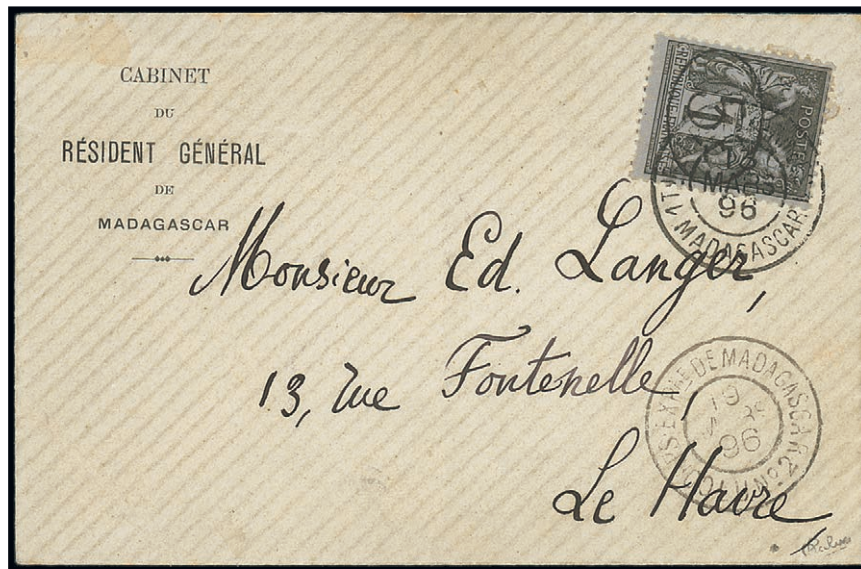 CABINET
DU
RÉSIDENT GÉNÉRAL
DE
MADAGASCAR
POSTES
5
MARS
96
MADAGASCAR
Monsieur Ed. Langer,
13, rue Fontenelle,
Le Havre
DE MADAGASCAR
19
96
Nº2